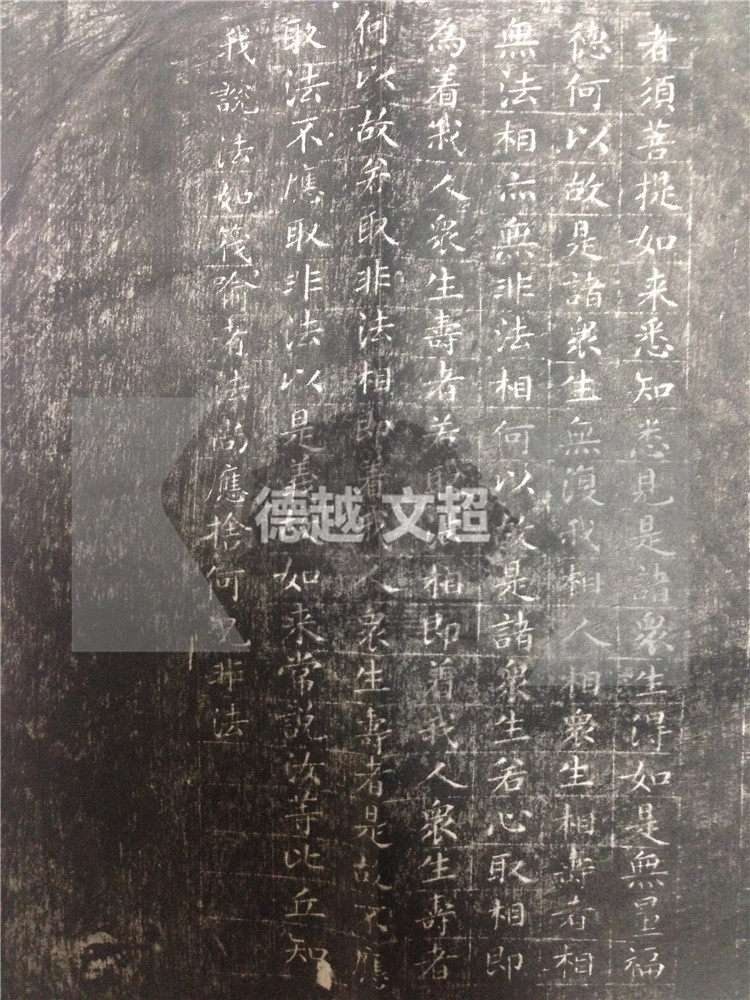 者須菩提如来悉知悉見是諸衆生得如是無量福
德何以故是諸衆生無復我相人相衆生相壽者相
無法相亦無非法相何以故是諸衆生若心取相即
為着我人衆生壽者若取法相即着我人衆生壽者
何以故若取非法相即着我人衆生壽者是故不應
取法不應取非法以是義故如来常說汝等比丘知
我說法如筏喻者法尚應捨何况非法
德越 文超